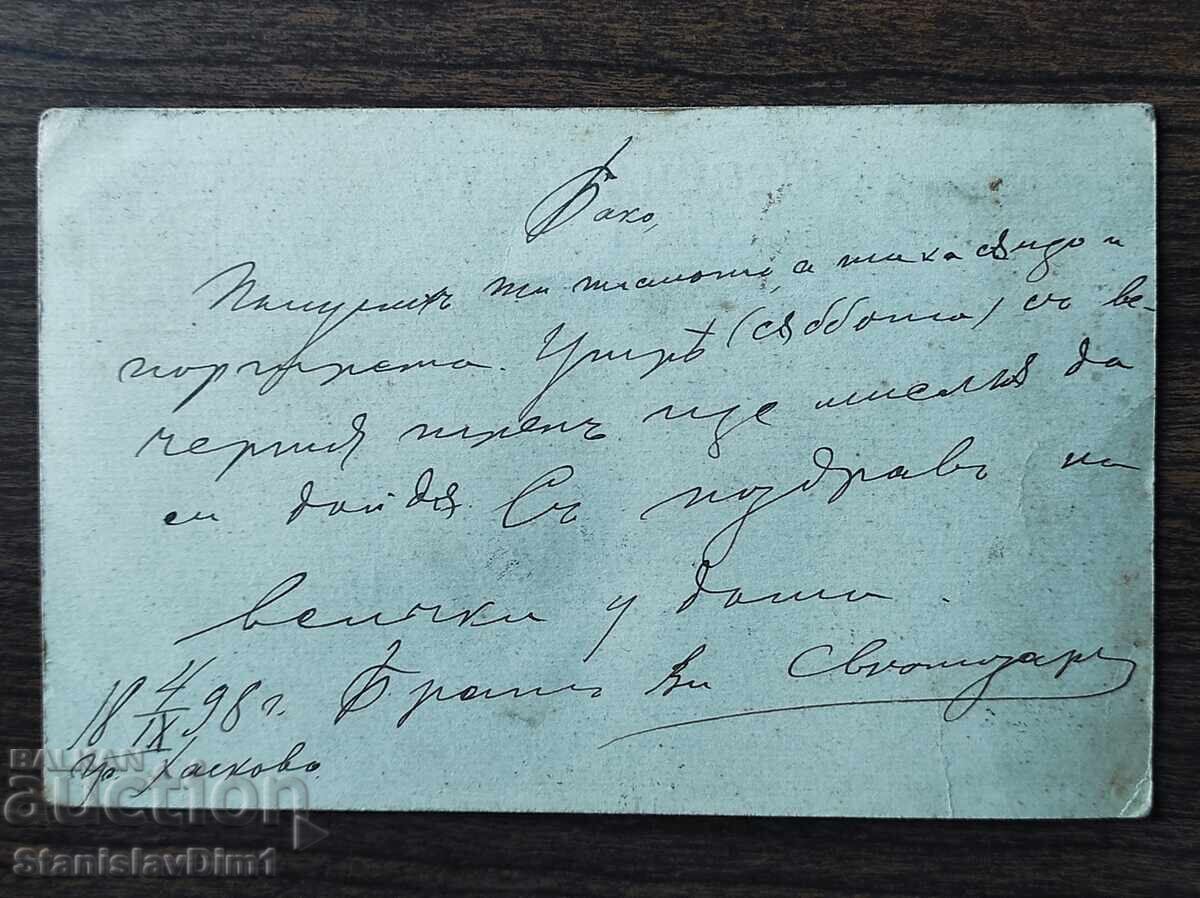 Бако,
Получихъ ти писмото, а така сѫщо и
портрета. Утрѣ (сѫббота) съ ве-
черния тренъ ще мислѭ да
си дойдѫ. Съ поздравъ на
всички у дома.
Братъ ви Светозаръ
18 4/IX 98 г.
гр. Хасково
BALKAN
auction
StanislavDim1